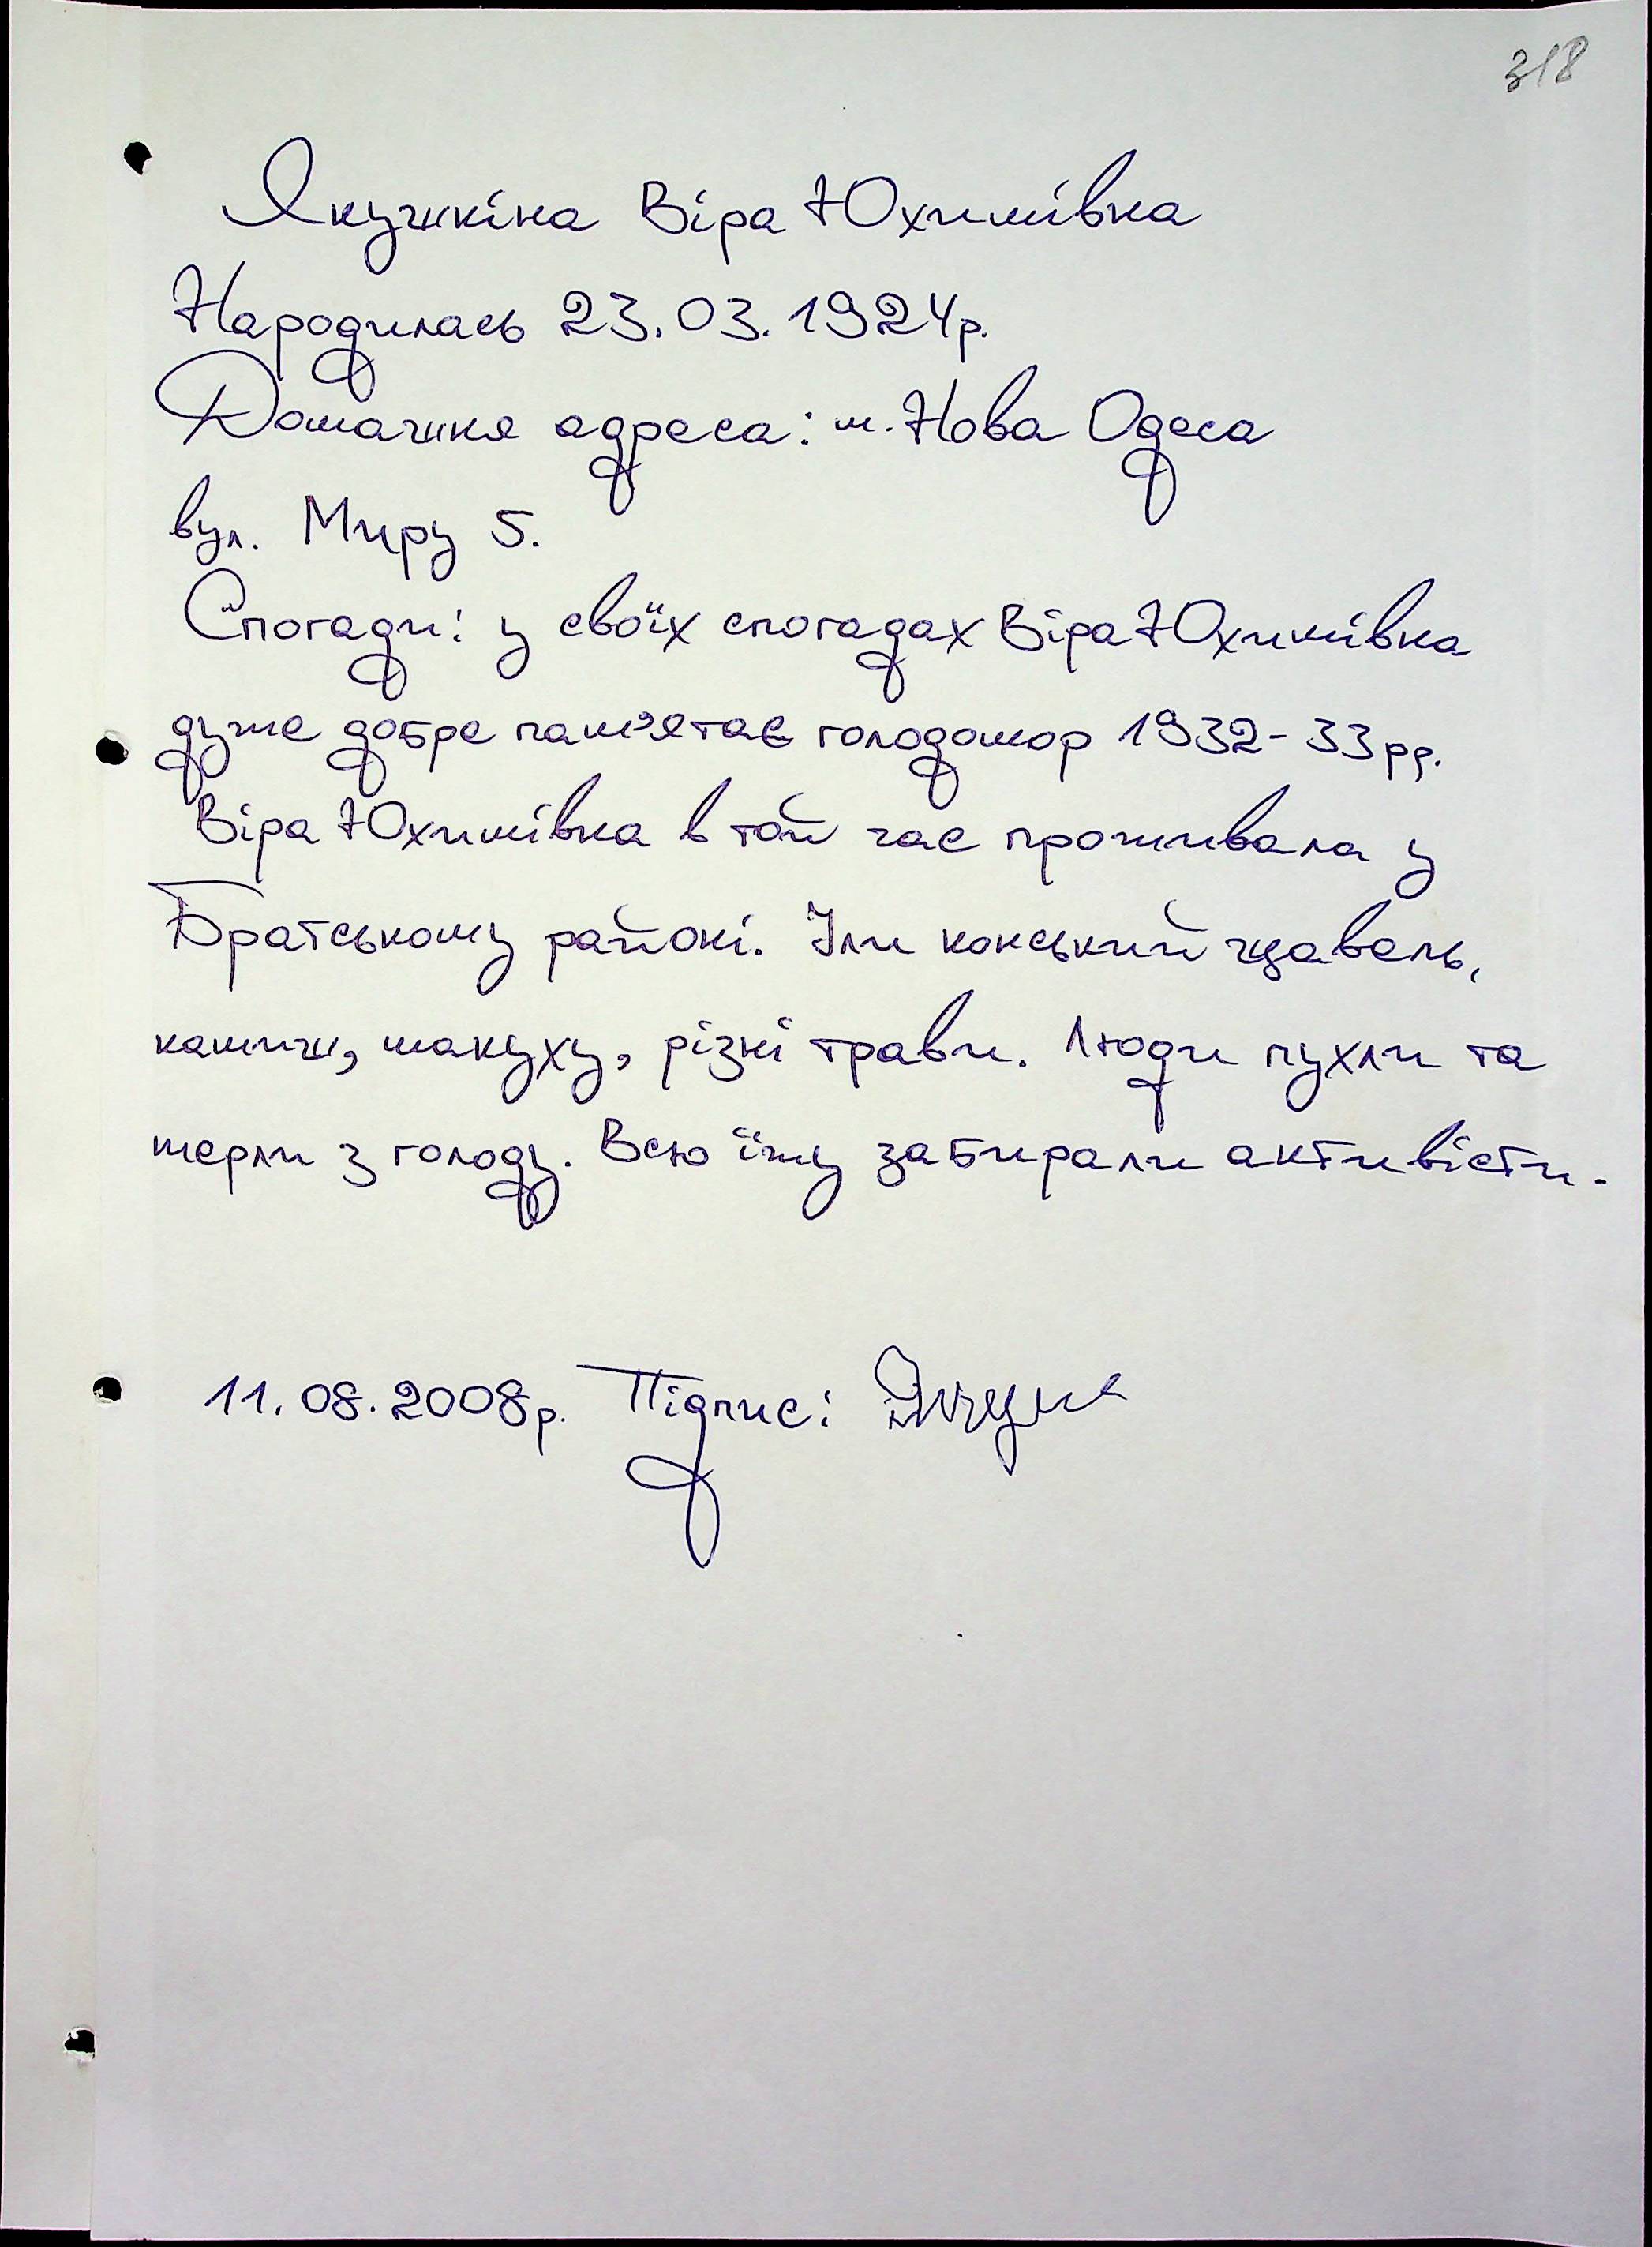 318
Якушкіна Віра Юхимівна
Народилась 23.03.1924р.
Домашня адреса: м. Нова Одеса
вул. Миру 5.
Спогади: у своїх спогадах Віра Юхимівна
дуже добре пам'ятає голодомор 1932-33рр.
Віра Юхимівна в той час проживала у
Братському районі. Їли конський щавель,
камиш, макуху, різні трави. Люди пухли та
мерли з голоду. Всю їжу забирали активісти.
11.08.2008р. Підпис: